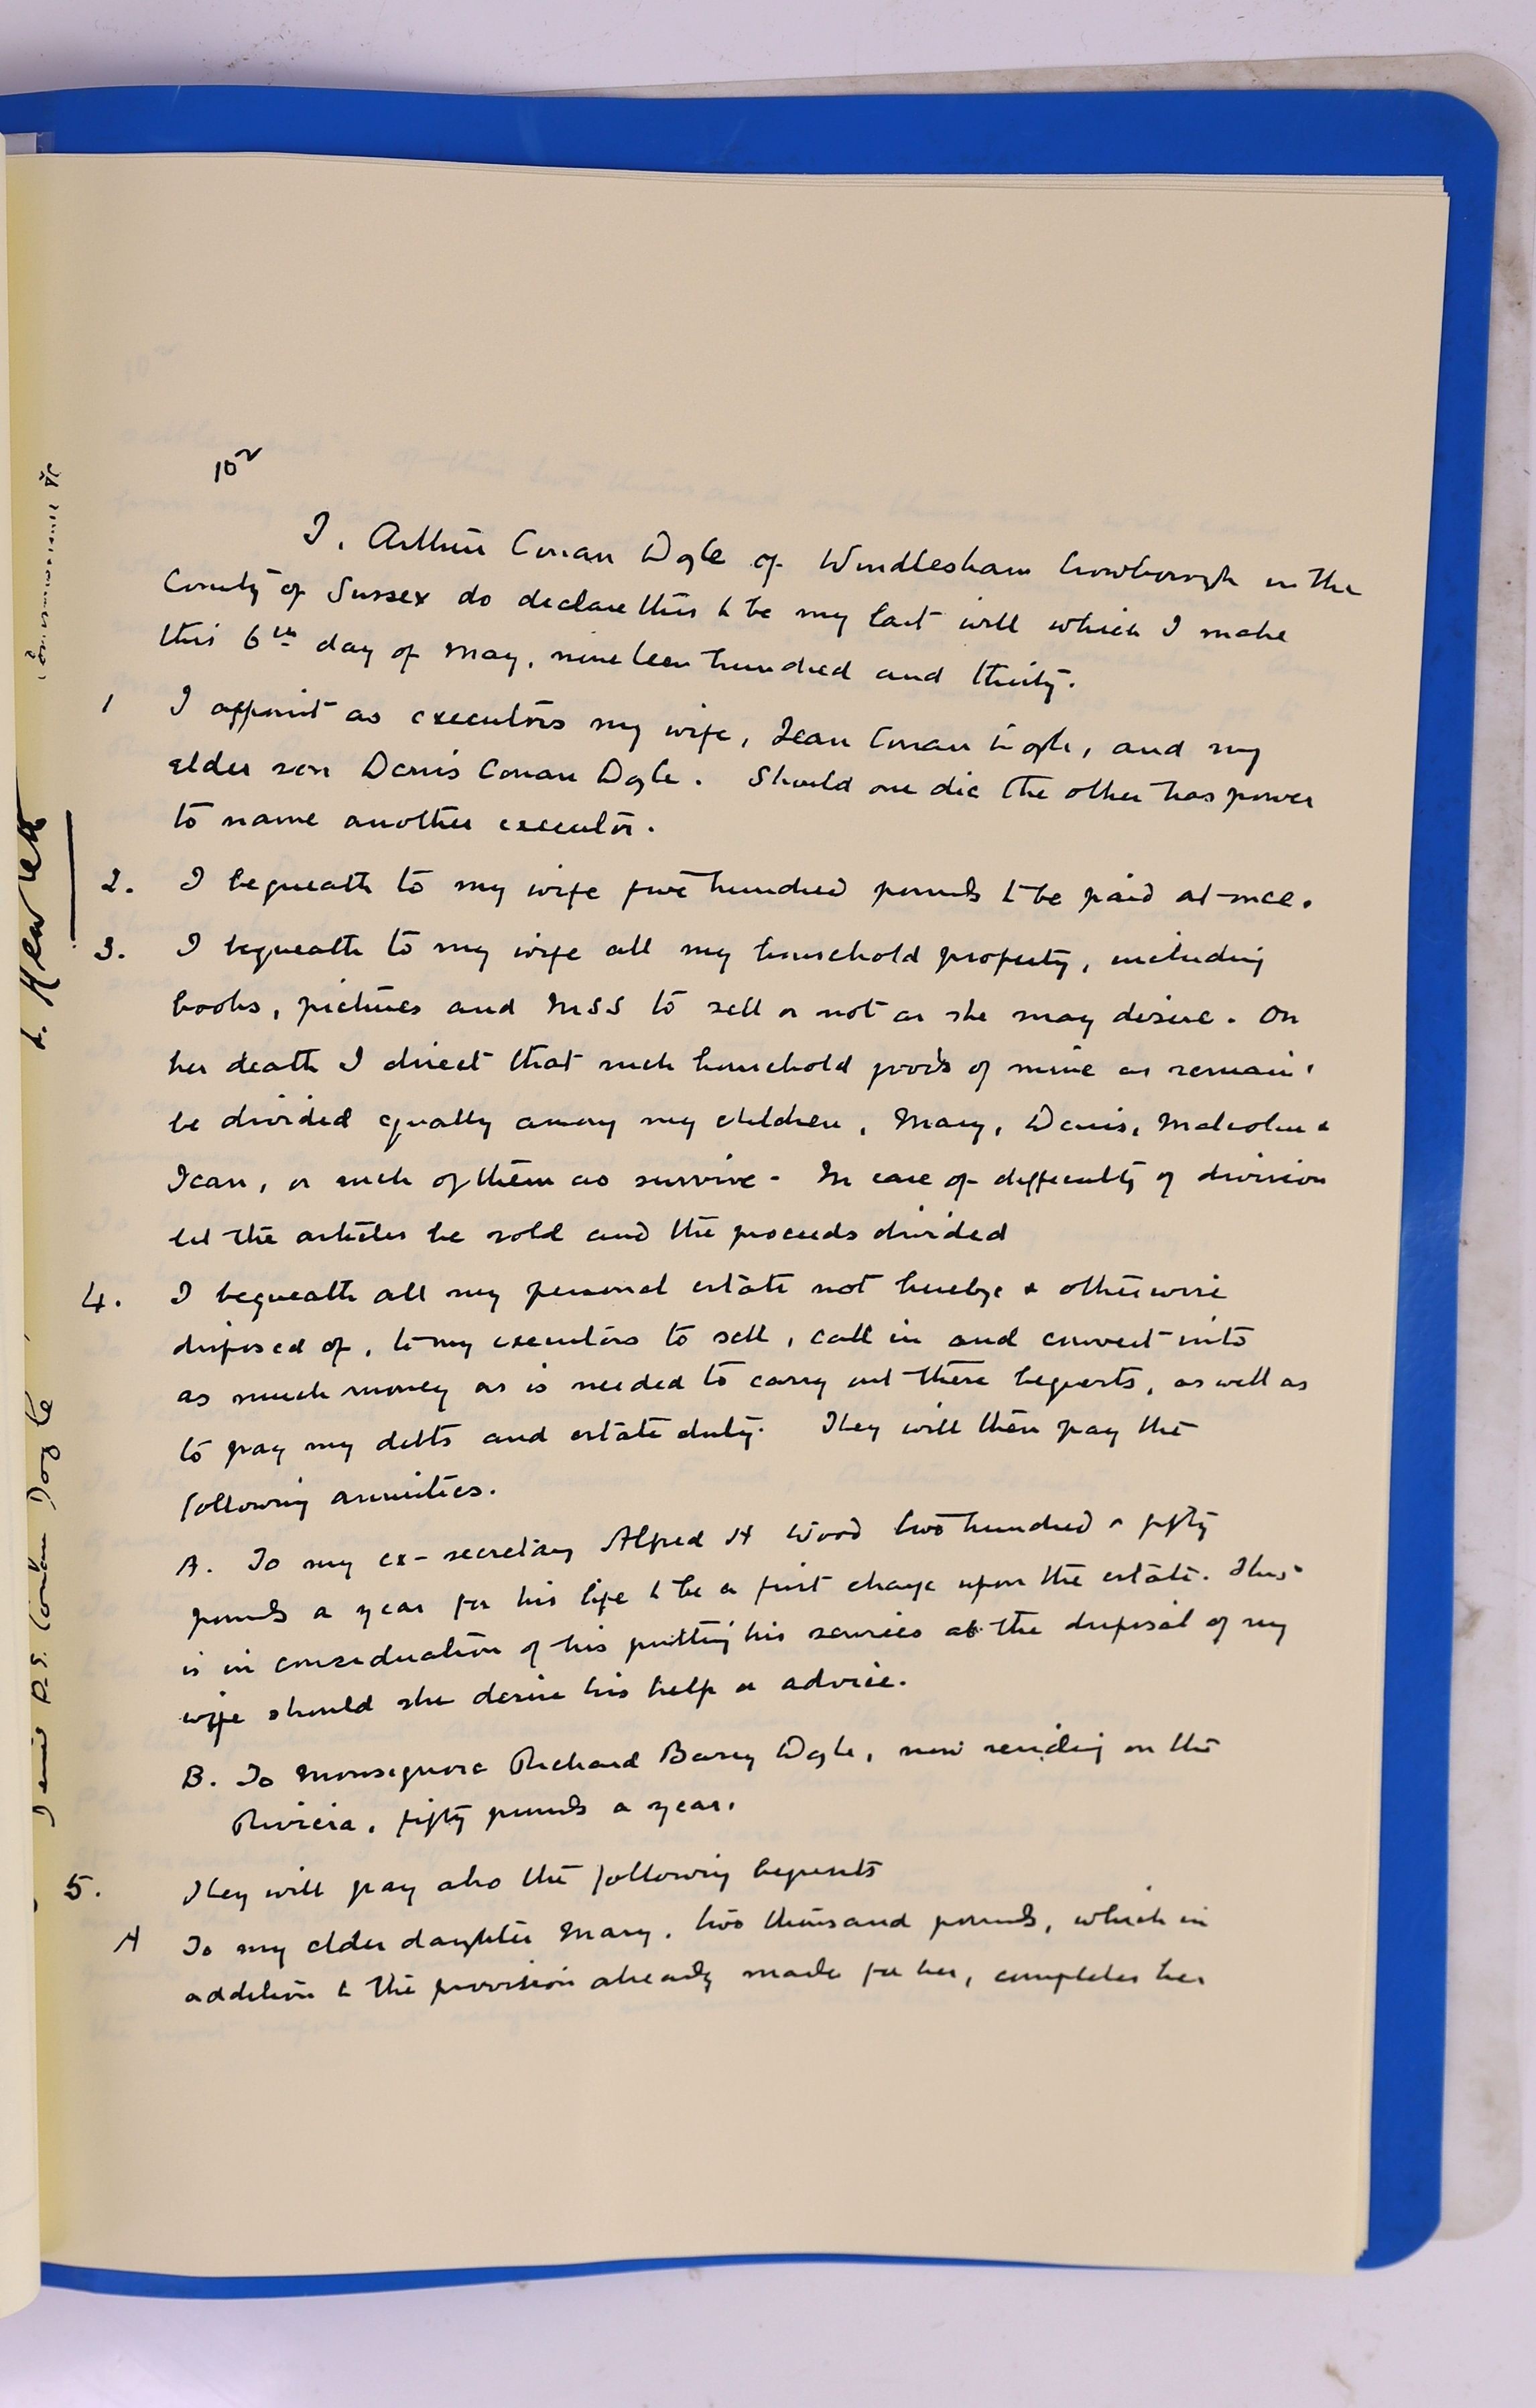 I, Arthur Conan Doyle of Windlesham Crowborough in the
County of Sussex do declare this to be my last will which I make
this 6th day of May, nineteen hundred and thirty.
1 I appoint as executors my wife, Jean Conan Doyle, and my
elder son Denis Conan Doyle. Should one die the other has power
to name another executor.
2. I bequeath to my wife five hundred pounds to be paid at once.
3. I bequeath to my wife all my household property, including
books, pictures and MSS to sell or not as she may desire. On
her death I direct that such household goods of mine as remain
be divided equally among my children, Mary, Denis, Malcolm &
Jean, or such of them as survive. In case of difficulty of division
let the articles be sold and the proceeds divided
4. I bequeath all my personal estate not hereby & otherwise
disposed of, to my executors to sell, call in and convert into
as much money as is needed to carry out these bequests, as well as
to pay my debts and estate duty. They will then pay the
following annuities.
A. To my ex-secretary Alfred H Wood two hundred & fifty
pounds a year for his life to be a first charge upon the estate. This
is in consideration of his putting his services at the disposal of my
wife should she desire his help or advice.
B. To Monsignore Richard Barry Doyle, now residing on the
Riviera, fifty pounds a year.
5. They will pay also the following bequests
A To my elder daughter Mary, two thousand pounds, which in
addition to the provision already made for her, completes her